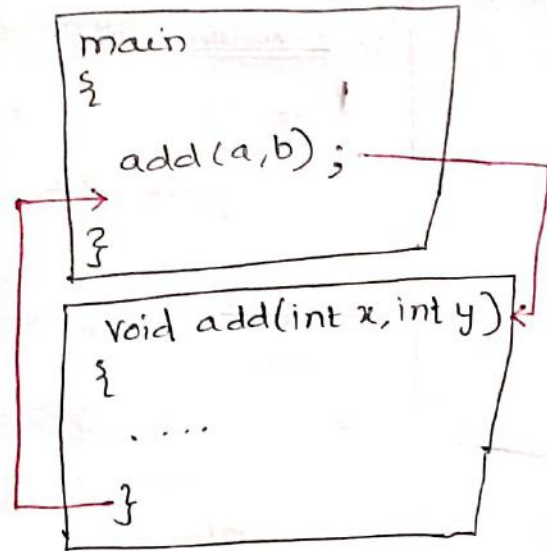 main
{
add(a,b);
}
void add(int x, int y)
{
....
}